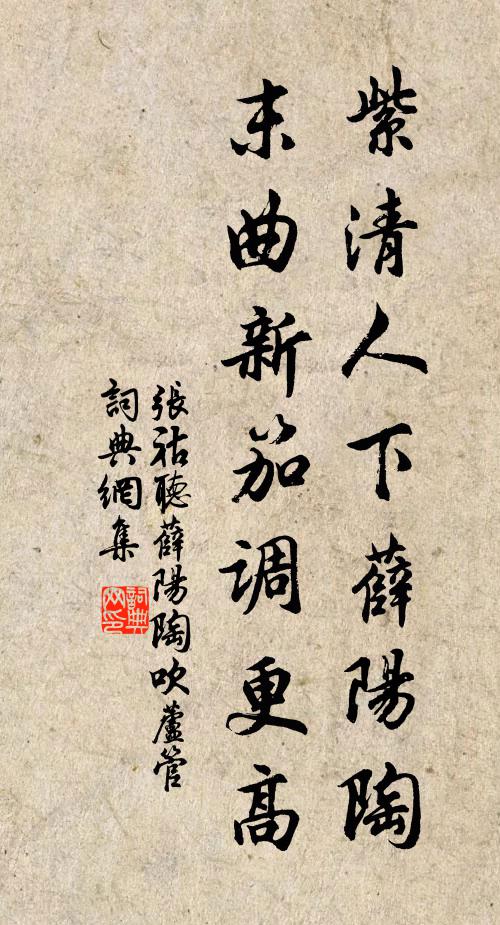 紫清人下薛陽陶
末曲新笳調更高
張祜聽薛陽陶吹蘆管
詞典網集
詞典网印